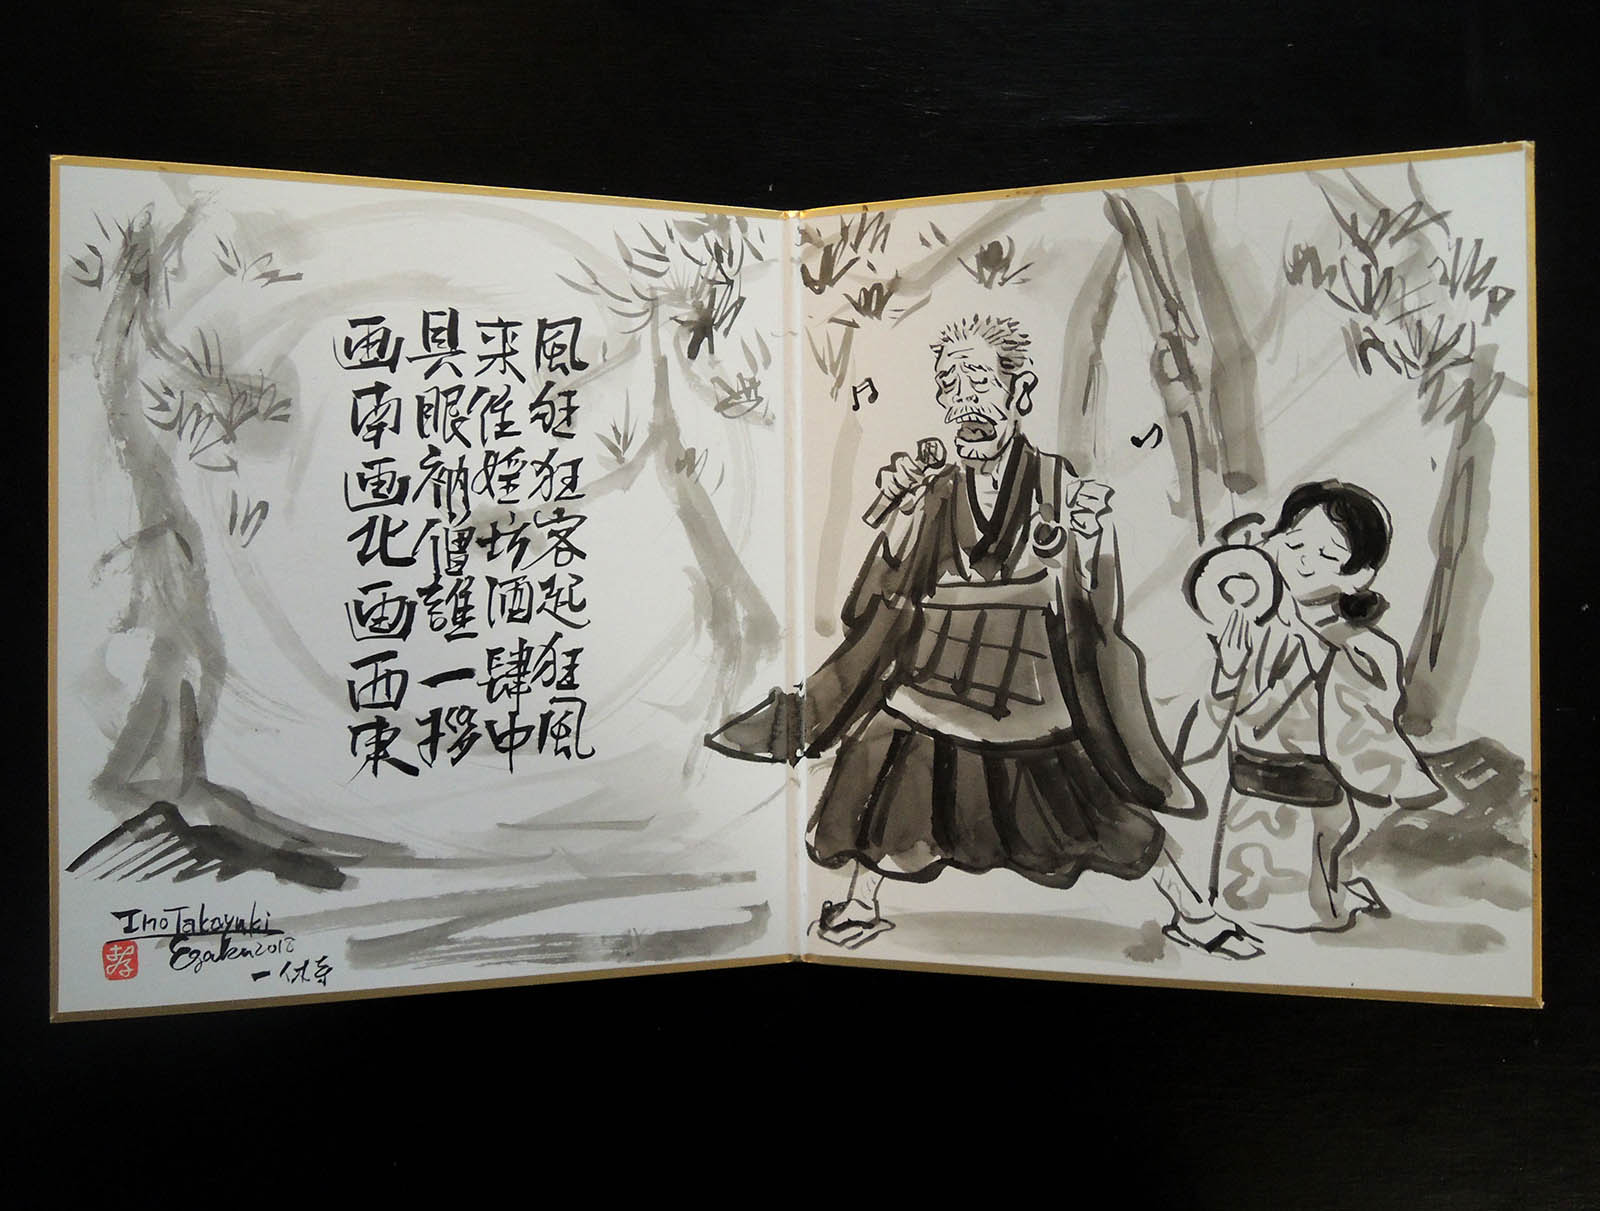 風狂狂客起狂風
来往婬坊酒肆中
具眼衲僧誰一拶
画南画北画西東
Ino Takayuki
Egaku 2018
一休寺